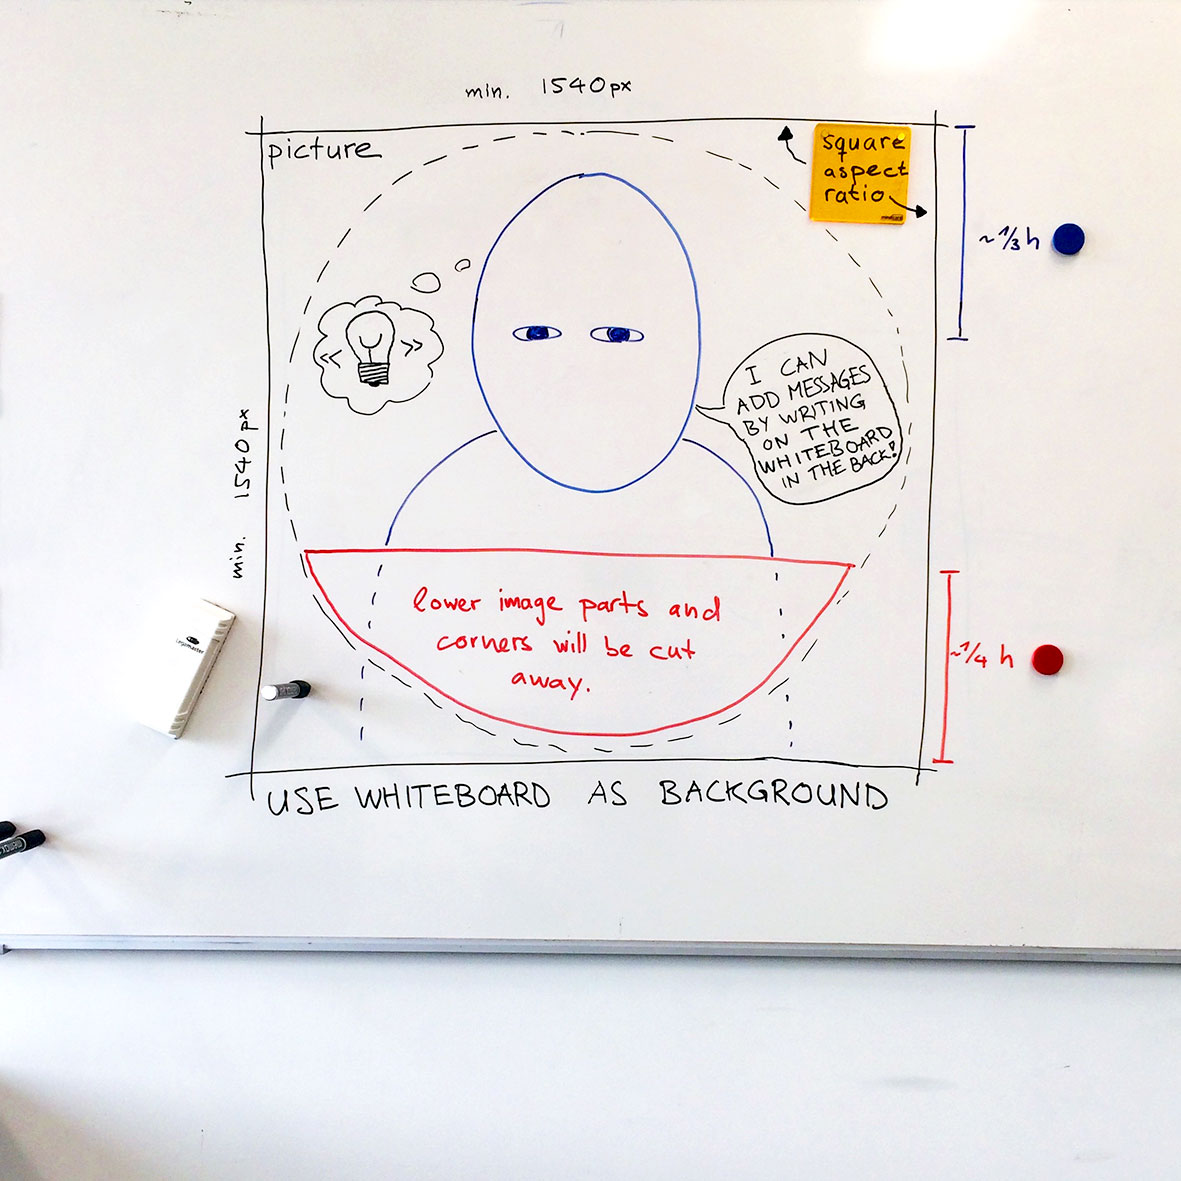 min. 1540px
picture
square
aspect
ratio
~1/3 h
I CAN
ADD MESSAGES
BY WRITING
ON THE
WHITEBOARD
IN THE BACK!
min. 1540px
lower image parts and
corners will be cut
away.
~1/4 h
Legamaster
USE WHITEBOARD AS BACKGROUND